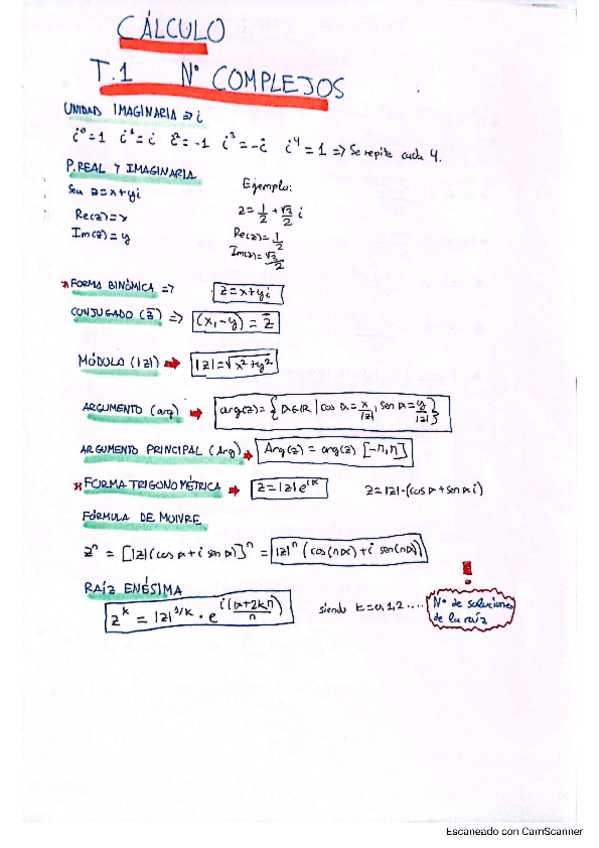 CÁLCULO
T.1 Nº COMPLEJOS
UNIDAD IMAGINARIA => i
i⁰=1 i¹=i i²=-1 i³=-i i⁴=1 => Se repite cada 4.
P.REAL Y IMAGINARIA
Sea z=x+yi
Re(z)=x
Im(z)=y
Ejemplo:
z=1/2+√3/2 i
Re(z)=1/2
Im(z)=√3/2
*FORMA BINÓMICA => z=x+yi
CONJUGADO (z̄) => (x,-y) = z̄
MÓDULO (|z|) → |z|=√x²+y²
ARGUMENTO (arg) → arg(z)={α∈IR | cos α=x/|z|, sen α=y/|z|}
ARGUMENTO PRINCIPAL (Arg) → Arg(z) = arg(z) [-π,π]
*FORMA TRIGONOMÉTRICA → z=|z|e^iα z=|z|·(cos α+sen α i)
FÓRMULA DE MOIVRE
zⁿ = [|z|(cos α+i sen α)]ⁿ = |z|ⁿ (cos(nα)+i sen(nα))
RAÍZ ENÉSIMA
z^k = |z|^1/k · e^i((α+2kπ)/n) siendo k=0,1,2.... Nº de soluciones
de la raíz
!
Escaneado con CamScanner